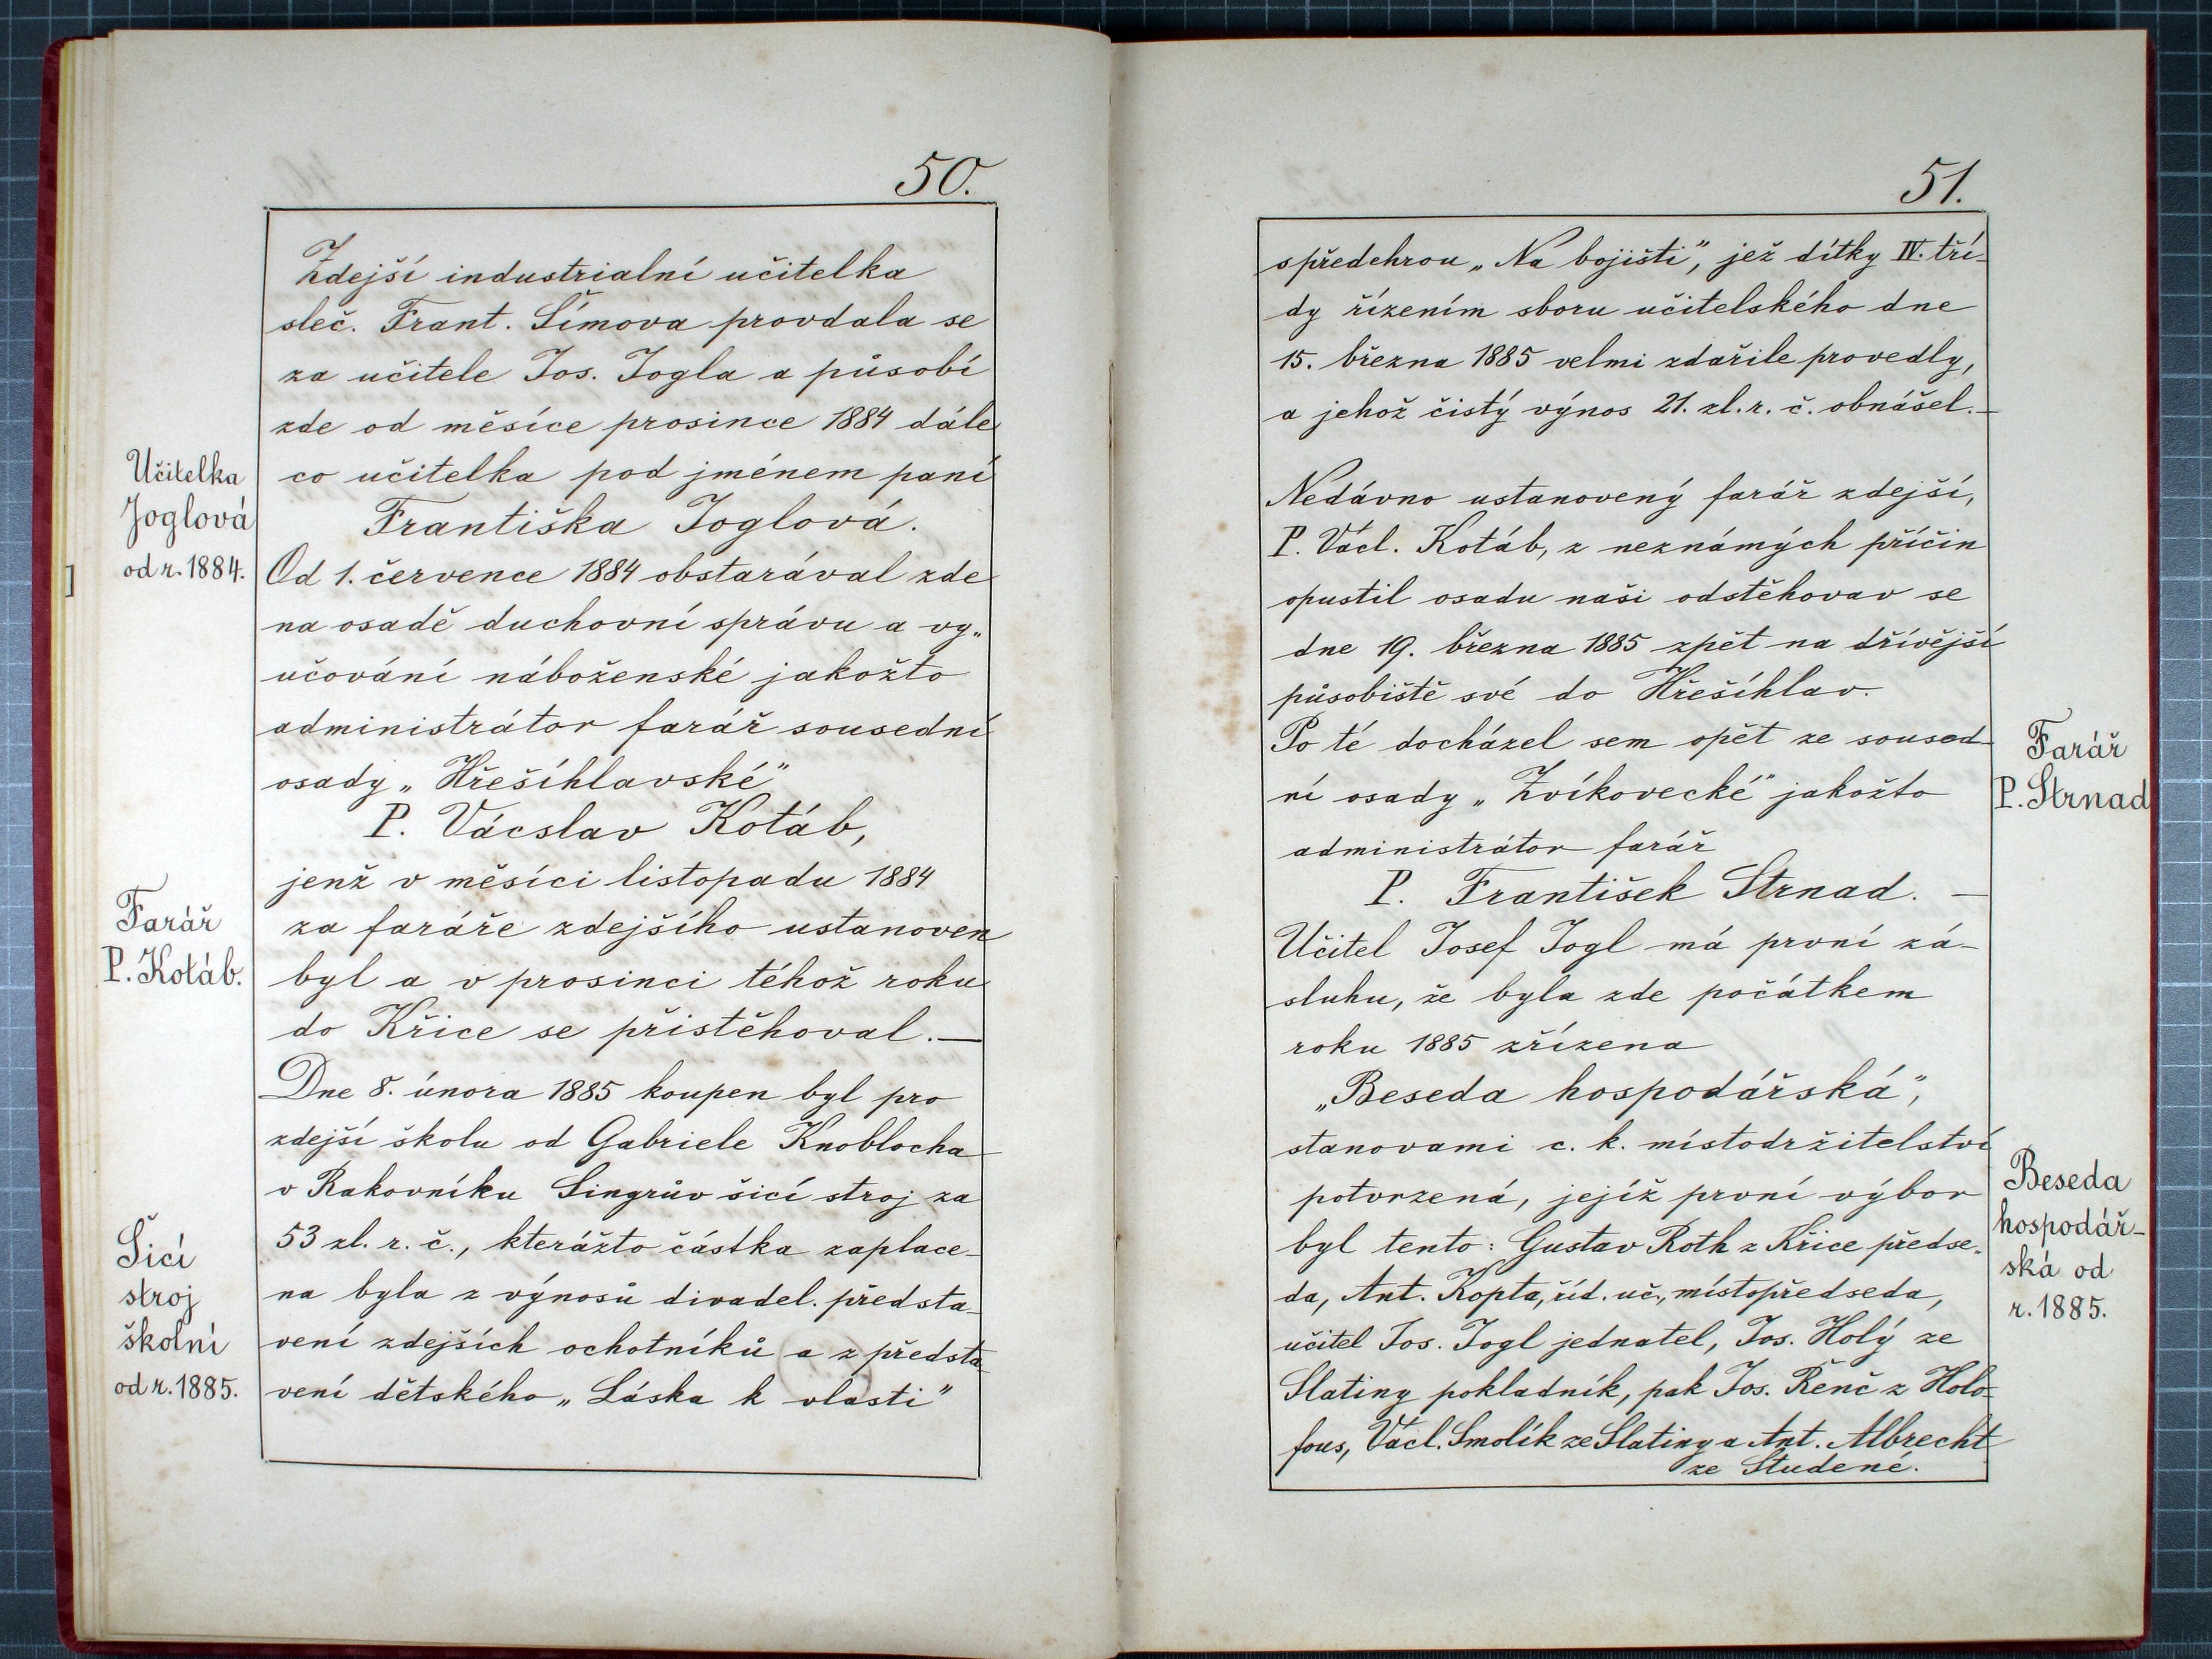 50.
Zdejší industrialní učitelka
sleč. Frant. Šímova provdala se
za učitele Jos. Jogla a působí
zde od měsíce prosince 1884 dále
co učitelka pod jménem paní
Františka Joglová.
Učitelka
Joglová
od r. 1884.
Od 1. července 1884 obstarával zde
na osadě duchovní správu a vy„
učování náboženské jakožto
administrátor farář sousední
osady „Hřešíhlavské"
P. Vácslav Kotáb,
jenž v měsíci listopadu 1884
za faráře zdejšího ustanoven
byl a v prosinci téhož roku
do Křice se přistěhoval.—
Farář
P. Kotáb.
Dne 8. února 1885 koupen byl pro
zdejší školu od Gabriele Knoblocha
v Rakovníku Singrův šicí stroj za
53 zl. r. č., kterážto částka zaplace-
na byla z výnosů divadel. předsta-
vení zdejších ochotníků a z předsta-
vení dětského „Láska k vlasti"
Šicí
stroj
školní
od r. 1885.
51.
s předehrou „Na bojišti", jež dítky IV. tří-
dy řízením sboru učitelského dne
15. března 1885 velmi zdařile provedly,
a jehož čistý výnos 21. zl. r. č. obnášel.—
Nedávno ustanovený farář zdejší,
P. Václ. Kotáb, z neznámých příčin
opustil osadu naši odstěhovav se
dne 19. března 1885 zpět na dřívější
působiště své do Hřešíhlav.
Po té docházel sem opět ze soused-
ní osady „Zvíkovecké" jakožto
administrátor farář
P. František Strnad. —
Farář
P. Strnad
Učitel Josef Jogl má první zá-
sluhu, že byla zde počátkem
roku 1885 zřízena
„Beseda hospodářská",
stanovami c. k. místodržitelství
potvrzená, jejíž první výbor
byl tento: Gustav Roth z Křice předse„
da, Ant. Kopta, říd. uč., místopředseda,
učitel Jos. Jogl jednatel, Jos. Holý ze
Slatiny pokladník, pak Jos. Řenč z Holo-
fous, Václ. Smolík ze Slatiny a Ant. Albrecht
ze Studené.
Beseda
hospodář-
ská od
r. 1885.